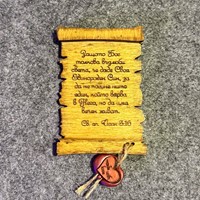 Защото Бог
толкова възлюби
света, че даде Своя
Единороден Син, за
да не погине нито
един, който вярва
в Него, но да има
вечен живот.
Св. ап. Йоан 3:16